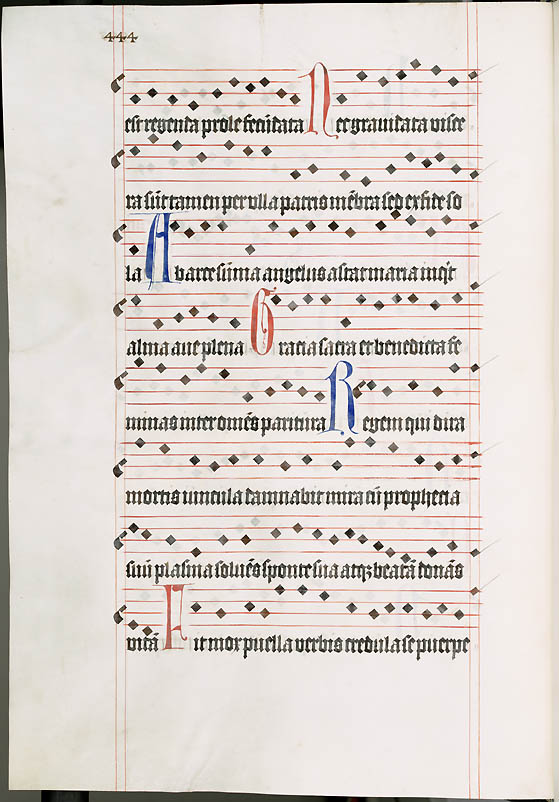 444
est regenda prole fecūdata Nec grauidata visce
ra sūt tamen per vlla patris mēbra sed ex fide so
la Ab arce sūma angelus astat maria inqͥt
alma aue plena Gracia sacra et benedicta fe
minas inter omēs paritura Regem qui dira
mortis vincula damnabit mira cū prophecia
suū plasma soluēs sponte sua atqꝫ beatā donās
vitā Fit mox puella verbis credula se puerpe